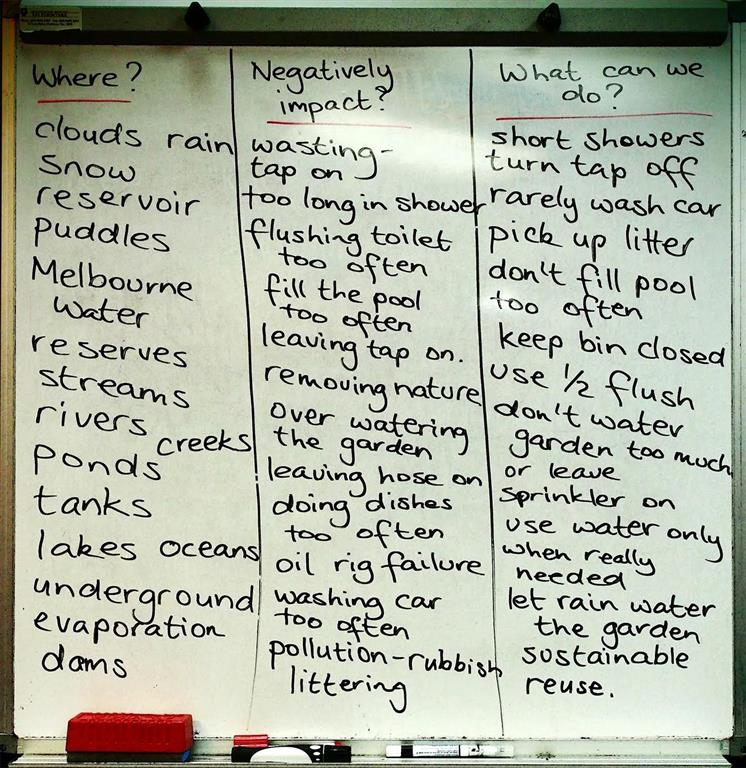 Where?
clouds rain
snow
reservoir
puddles
Melbourne
Water
reserves
streams
rivers
creeks
ponds
tanks
lakes oceans
underground
evaporation
dams
Negatively
impact?
wasting-
tap on
too long in shower
flushing toilet
too often
fill the pool
too often
leaving tap on.
removing nature
over watering
the garden
leaving hose on
doing dishes
too often
oil rig failure
washing car
too often
pollution-rubbish
littering
What can we
do?
short showers
turn tap off
rarely wash car
pick up litter
don't fill pool
too often
keep bin closed
use 1/2 flush
don't water
garden too much
or leave
sprinkler on
use water only
when really
needed
let rain water
the garden
sustainable
reuse.